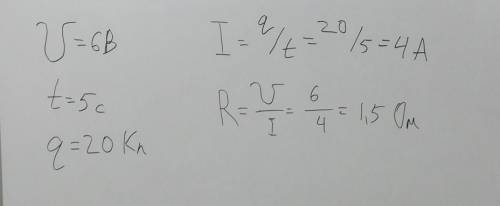 U=6В
t=5с
q=20 Кл
I = q/t = 20/5 = 4 А
R = U/I = 6/4 = 1,5 Ом